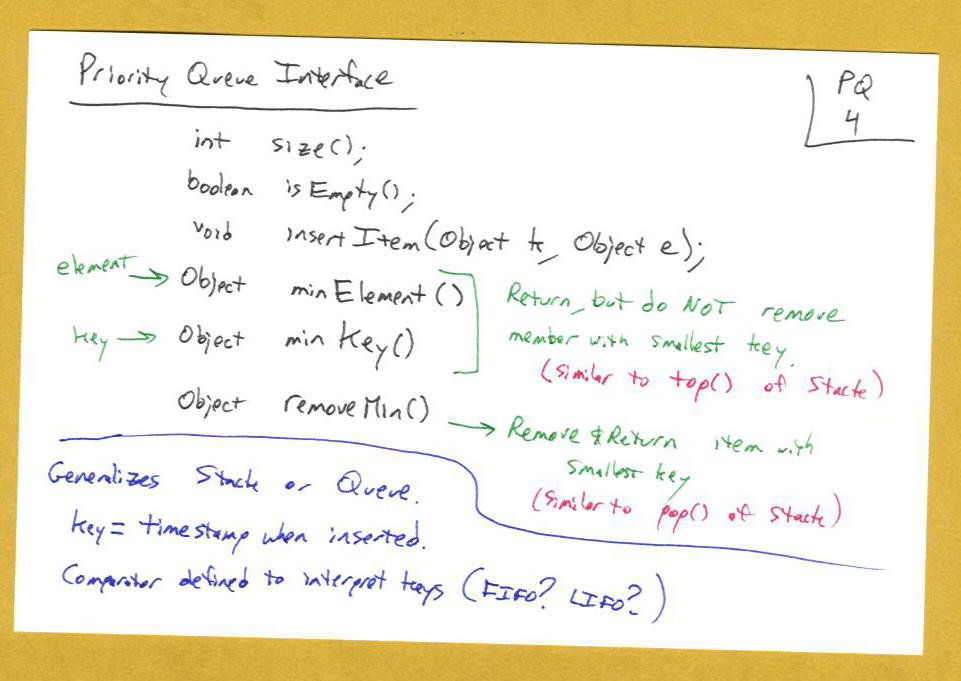 Priority Queue Interface
PQ
4
int size();
boolean isEmpty();
void insertItem(Object k, Object e);
element → Object minElement()
key → Object minKey()
Return, but do NOT remove
member with smallest key.
(similar to top() of Stack)
Object removeMin()
→ Remove & Return item with
smallest key
(similar to pop() of Stack)
Generalizes Stack or Queue.
key = timestamp when inserted.
Comparator defined to interpret keys (FIFO? LIFO?)